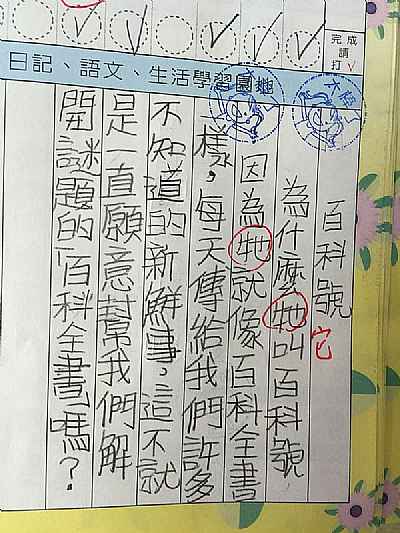 完成
請
打√
日記、語文、生活學習園地
百科號
為什麼牠叫百科號
它
因為牠就像百科全書
一樣，每天傳給我們許多
不知道的新鮮事，這不就
是一直願意幫我們解
開謎題的「百科全書」嗎？